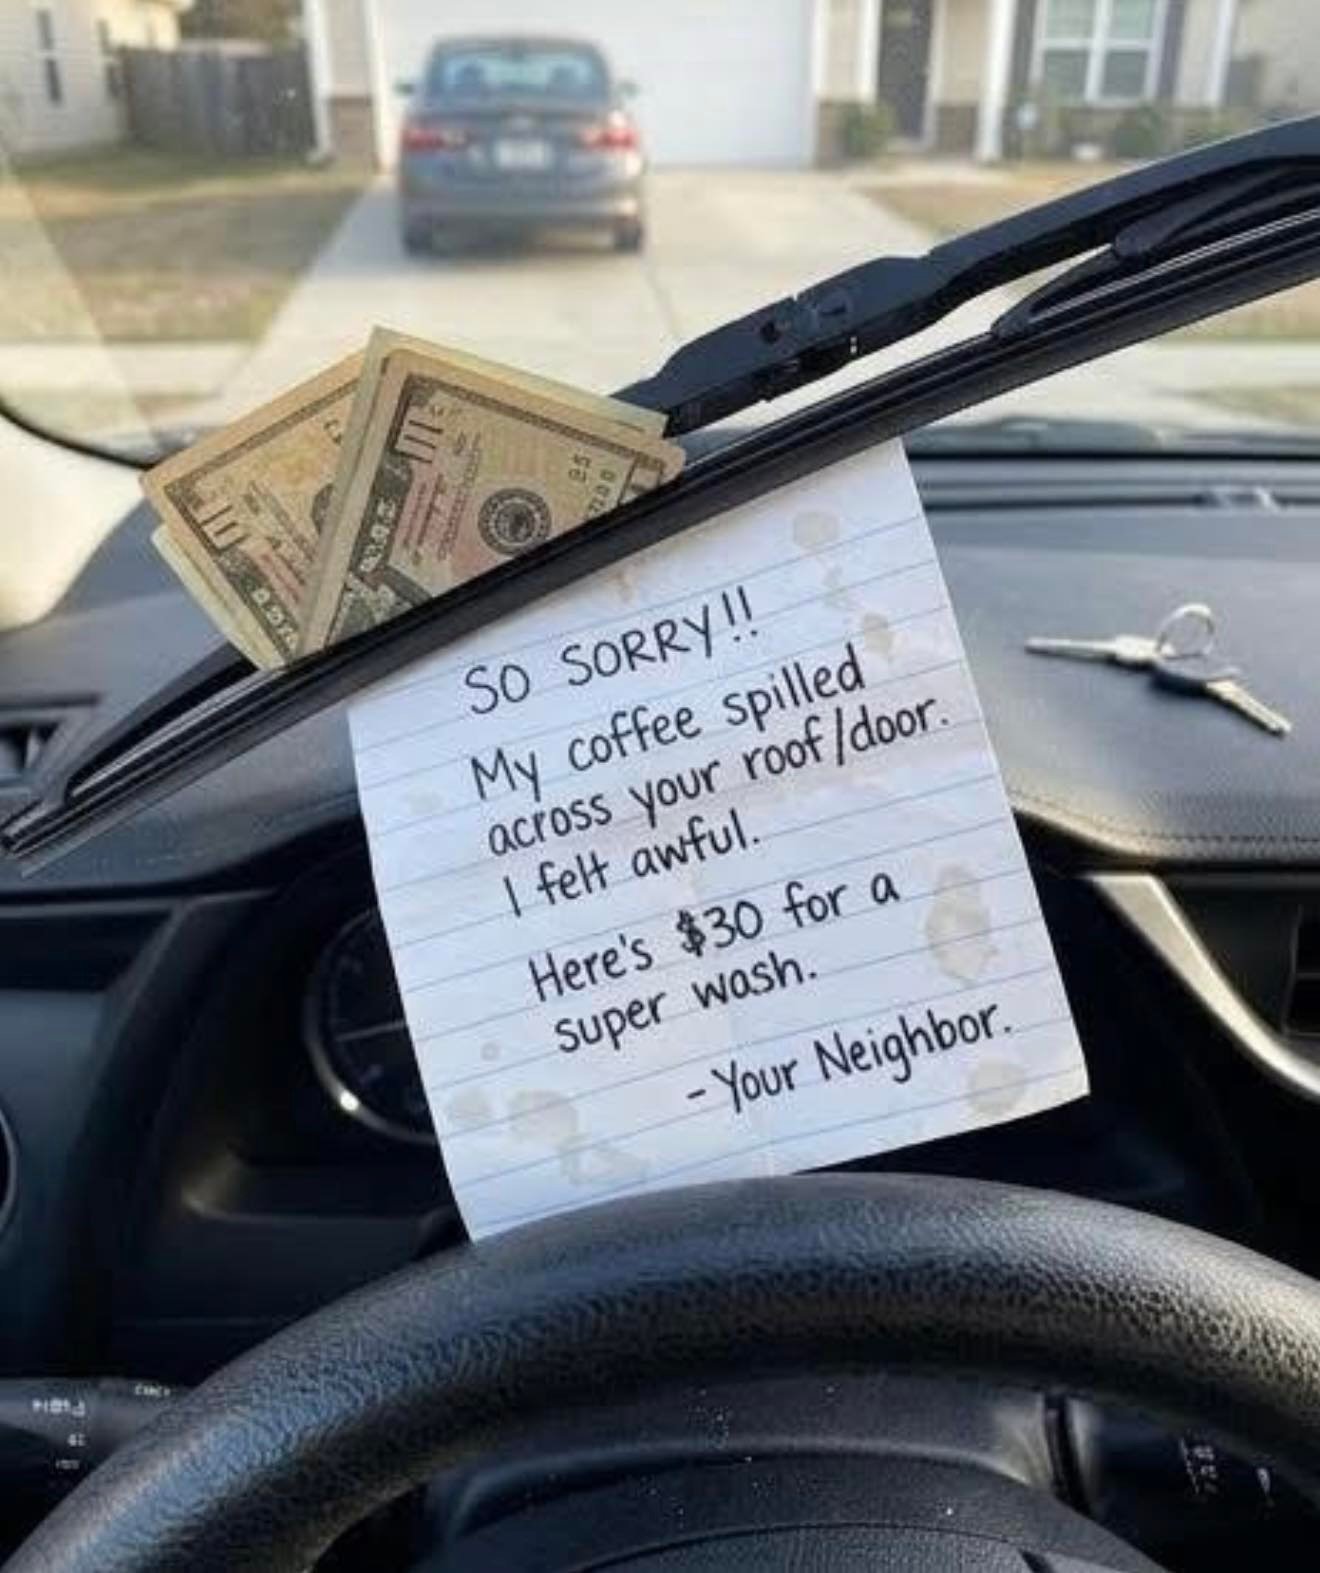 SO SORRY!!
My coffee spilled
across your roof/door.
I felt awful.
Here's $30 for a
super wash.
- Your Neighbor.